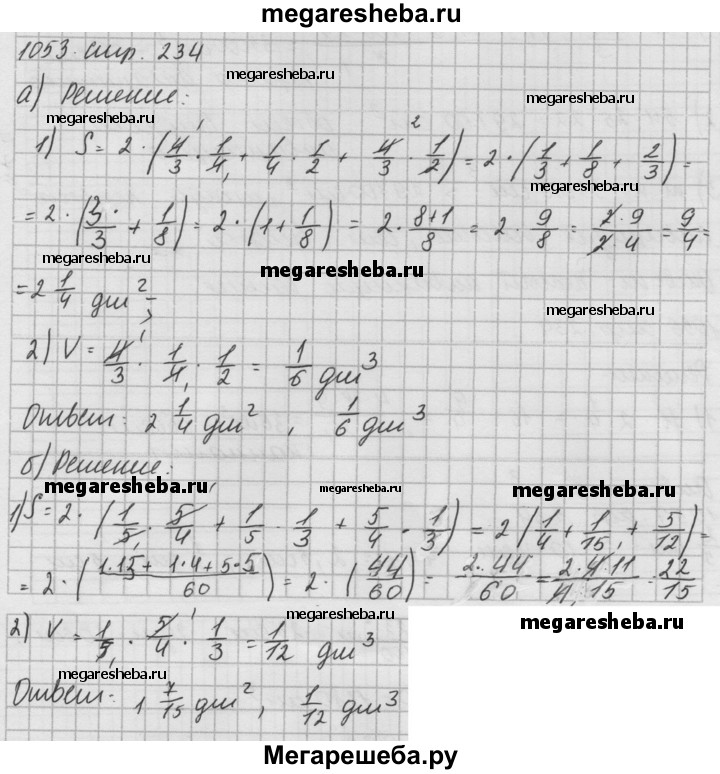 megaresheba.ru
1053 стр. 234
megaresheba.ru
а) Решение:
megaresheba.ru
megaresheba.ru
1) S = 2 · (4/3 · 1/4 + 1/4 · 1/2 + 4/3 · 1/2) = 2 · (1/3 + 1/8 + 2/3) =
megaresheba.ru
= 2 · (3/3 + 1/8) = 2 · (1 + 1/8) = 2 · 8+1/8 = 2 · 9/8 = 2 · 9/2 · 4 = 9/4 =
megaresheba.ru
= 2 1/4 дм²;
megaresheba.ru
2) V = 4/3 · 1/4 · 1/2 = 1/6 дм³
megaresheba.ru
Ответ: 2 1/4 дм², 1/6 дм³
б) Решение:
megaresheba.ru
megaresheba.ru
megaresheba.ru
1) S = 2 · (1/5 · 5/4 + 1/5 · 1/3 + 5/4 · 1/3) = 2 (1/4 + 1/15 + 5/12) =
= 2 · (1·15 + 1·4 + 5·5/60) = 2 · (44/60) = 2 · 44/60 = 2·4·11/4·15 = 22/15
megaresheba.ru
megaresheba.ru
2) V = 1/5 · 5/4 · 1/3 = 1/12 дм³
megaresheba.ru
megaresheba.ru
Ответ: 1 7/15 дм², 1/12 дм³
Мегарешеба.ру